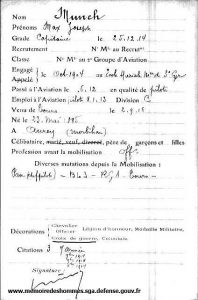 Nom Munch
Prénoms Max Joseph
Grade Capitaine le 25.12.14
Recrutement Nº Mle au Recrut
Classe Nº Mle au 1er Groupe d'Aviation
Engagé
Appelé le Oct. 1904 à Ecole
Passé à l'Aviation le 5.12 en qualité de pilote
Emploi à l'Aviation pilote 8.1.13 Division C
Venu de Tours le 2.9.15
Né le 22 Mai
à Auray (Morbihan)
Célibataire, marié, veuf, divorcé, père de garçons et filles
Profession avant la mobilisation Off
Diverses mutations depuis la Mobilisation :
R.G.A - Tours
Décorations
Chevalier
Officier Légion d'honneur, Médaille Militaire,
Croix de guerre, Coloniale.
Citations 3
Signature
www.memoiredeshommes.sga.defense.gouv.fr